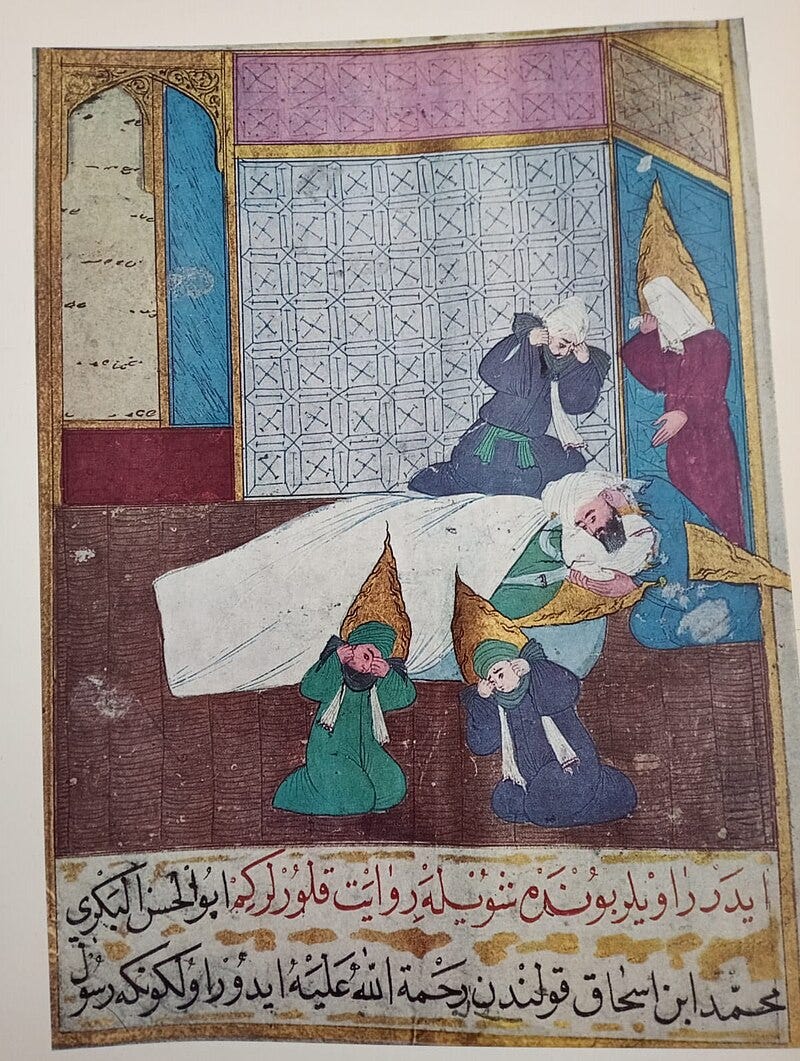 ايدَر رَاويلر بوُنْدَه شوُيْلَه رِوٰايَت قلوُرْلَركِيمْ ابوُ الحسن البَكَرِي
محمّد ابن اسحٰاق قولندن رَحْمَة اللّٰه عَلَيْهِ ايدوُر اوُلكونكه رسوُل